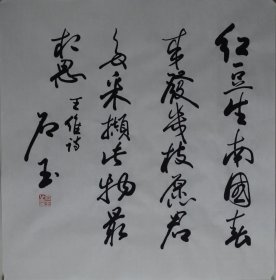 红豆生南國春
来發幾枝愿君
多采擷此物最
相思
王维詩
石玉